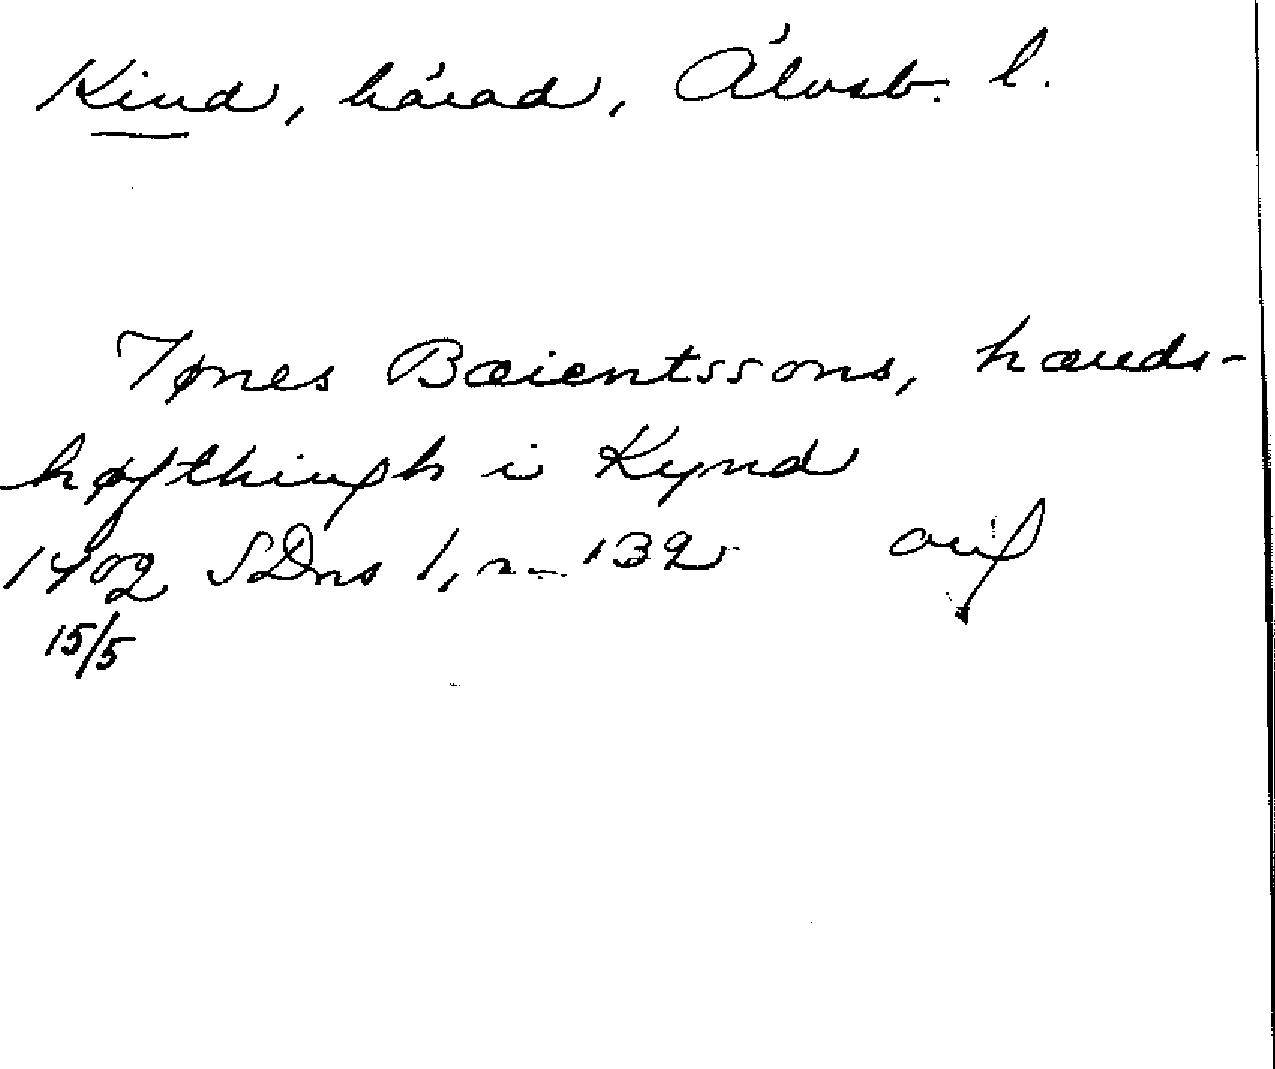 Kind, härad, Älvsb. l.
Tønes Bæientssons, hæreds-
høfthingh i Kynd
1402 SDns 1, s. 132 orig
15/5